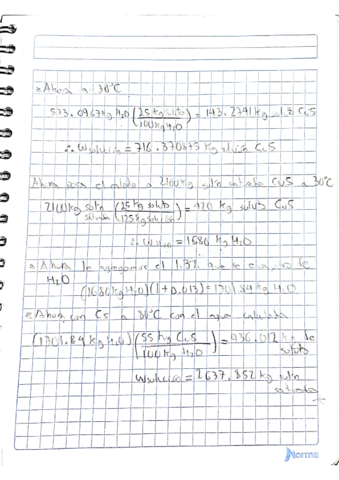 Ahora a 30°C
573.0967 kg H2O (25 kg soluto / 100 kg H2O) = 143.2741 kg CuS
∴ Wsolución = 716.370875 kg CuS
Ahora para el a 2100 kg soln saturada CuS a 30°C
2100 kg soln saturada (25 kg soluto / 125 kg solución) = 420 kg soluto CuS
∴ = 1680 kg H2O
Ahora le agregamos el 1.3% que se de
H2O
(1680 kg H2O)(1 + 0.013) = 1701.84 kg H2O
Ahora con CS a 80°C con el agua calculada
(1701.84 kg H2O) (55 kg CuS / 100 kg H2O) = 936.012 kg de soluto
Wsolución = 2637.852 kg soln
saturada
Norma